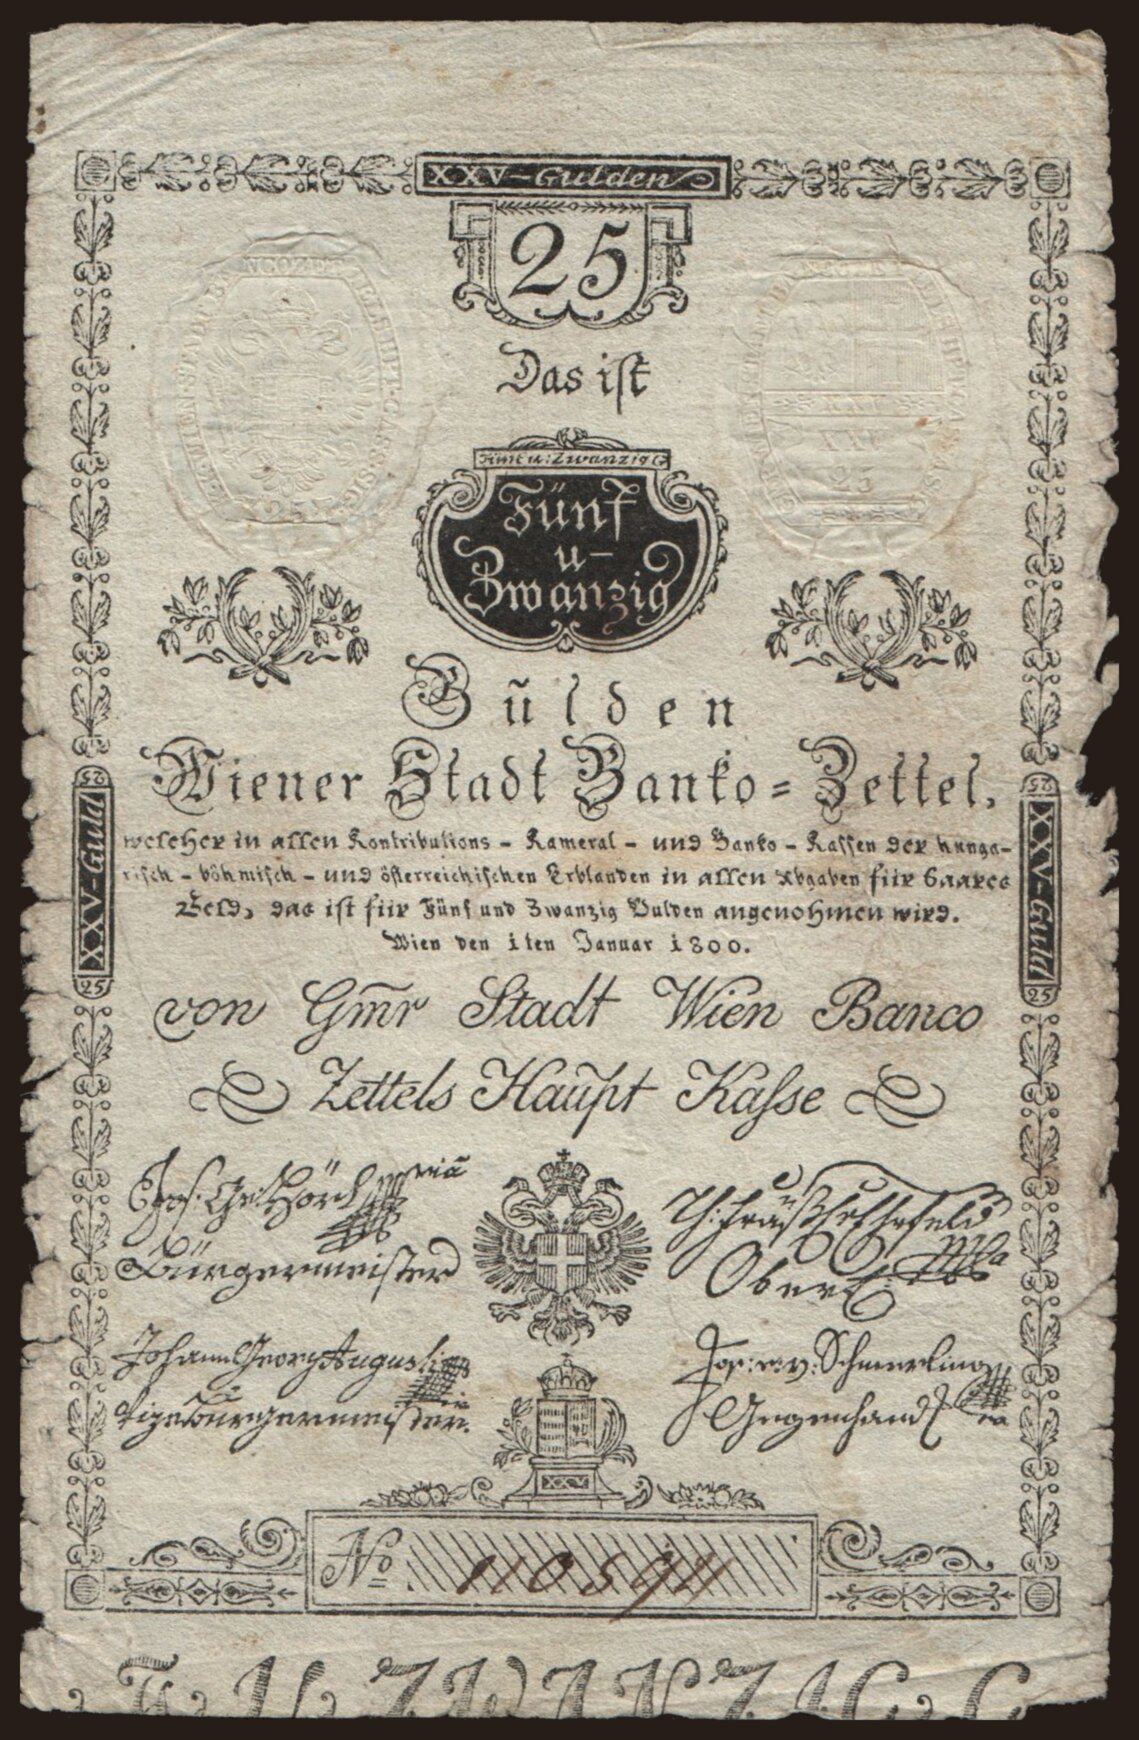 XXV-Gulden
25
Das iſt
Fünf u: Zwanzig G
Fünf
u-
Zwanzig
Gulden
Wiener Stadt Banko=Zettel,
welcher in allen Kontributions - Kameral - und Banko - Kaſſen der hunga-
riſch - böhmiſch - und öſterreichiſchen Erblanden in allen Abgaben für baares
Geld, das iſt für Fünf und Zwanzig Gulden angenohmen wird.
Wien den 1ten Januar 1800.
von Gm̃r Stadt Wien Banco
Zettels Haupt Kaſse
Bürgermeister
Ober
Johann Georg Augusti
Jos: Schmerling
Vizebürgermeister.
Gegenhand
XXV
No 110594
25
XXV-Guld
25
25
XXV-Guld
25
25
XXV
25